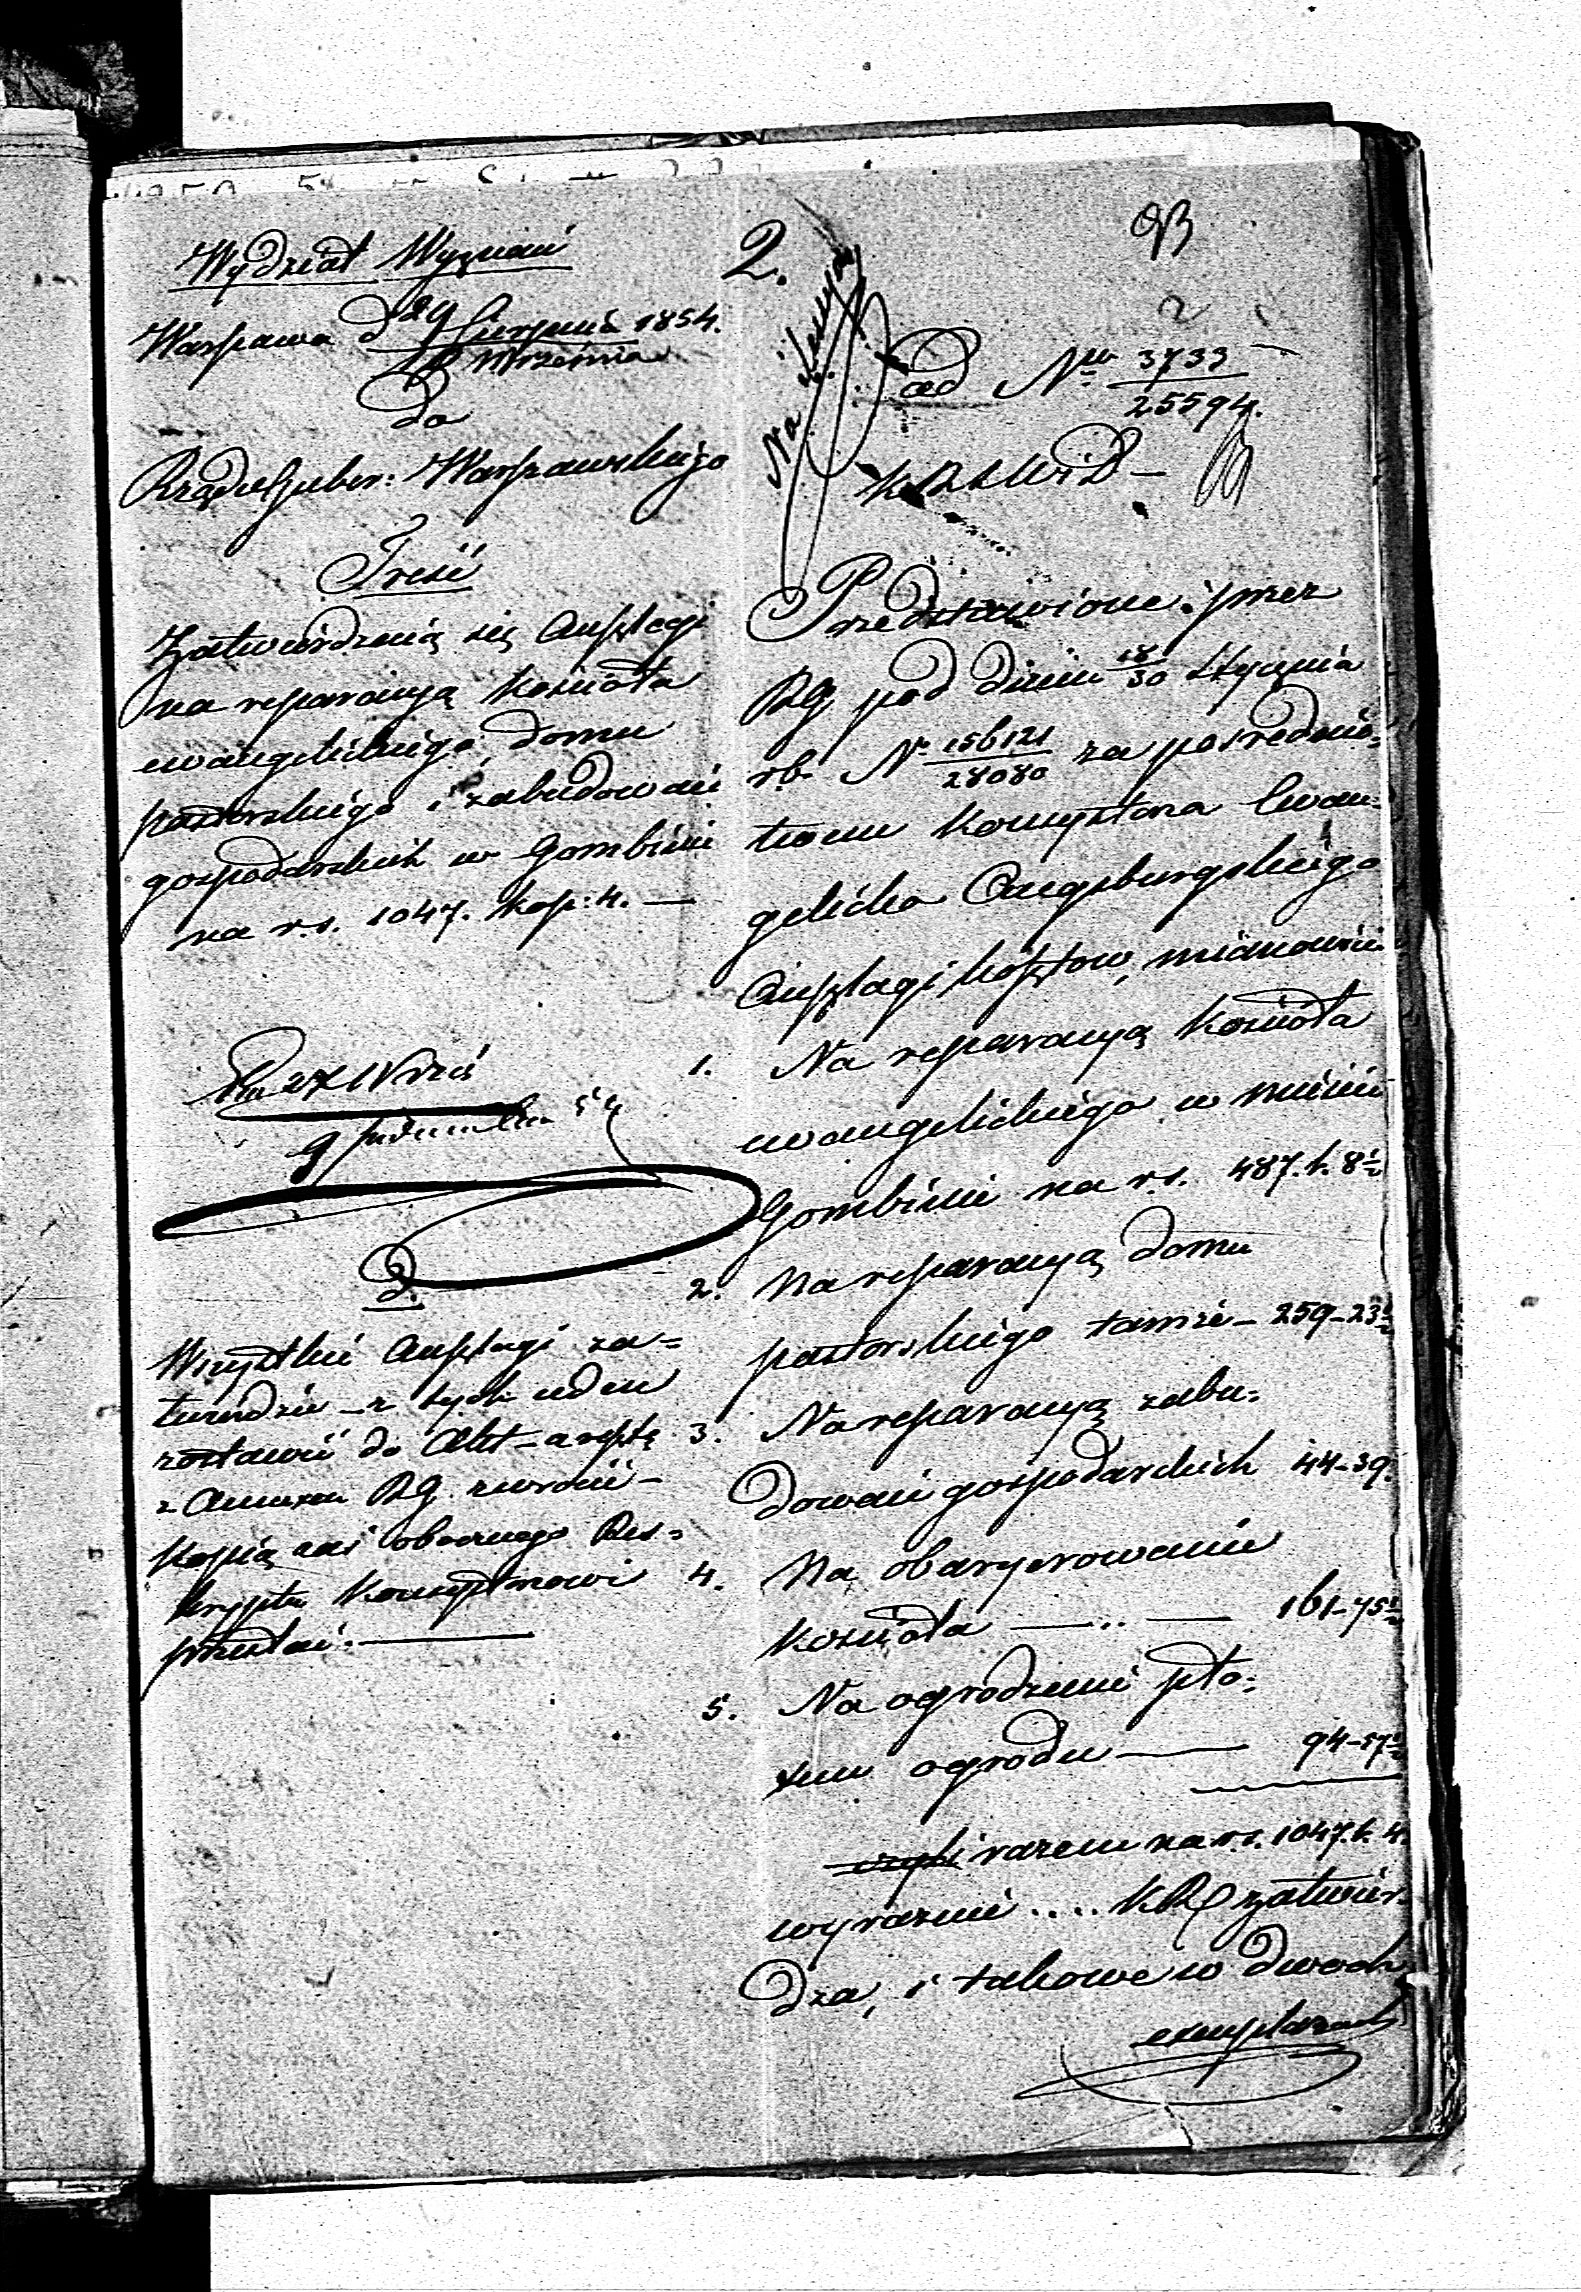 Wydział Wyznań
Warszawa d 29 Sierpnia 1854.
Września
do
Rządu Guber: Warszawskiego
Treść
Zatwierdzenią się Anszlagi
na reparacyą kościoła
ewangelickiego, domu
pastorskiego i zabudowań
gospodarskich w Gombinie
na r.s. 1047. kop: 4. —
2.
Wszystkie Anszlagi za=
twierdzić – z tych jeden
zostawić do Akt – a resztę
z Annexem RG. zwrócić –
Kopią zaś obocznego Res=
kryptu Konsystorzowi
przesłać. —
2.
93
2
ad Nro 3733
25594.
Przedstawione przez
RG. pod dniem 18/30 Stycznia
rb. No 156121
28080 za pośrednic=
twem Konsystorza Ewan=
gelicko Augsburgskiego
Anszlagi kosztow, mianowicie
1. Na reparacyą kościoła
ewangelickiego w mieście
Gombinie na r.s. 487. k. 8½
2. Na reparacyą domu
pastorskiego tamże – 259–23½
3. Na reparacyą zabu=
dowań gospodarskich 44–39.
4. Na obaryerowanie
kościoła — .. — 161–75½
5. Na ogrodzenie pło=
tem ogrodu — 94–57½
czyli razem na r.s. 1047. k. 4.
wyraźnie .... KR zatwier=
dza, i takowe w dwóch
exemplarzach